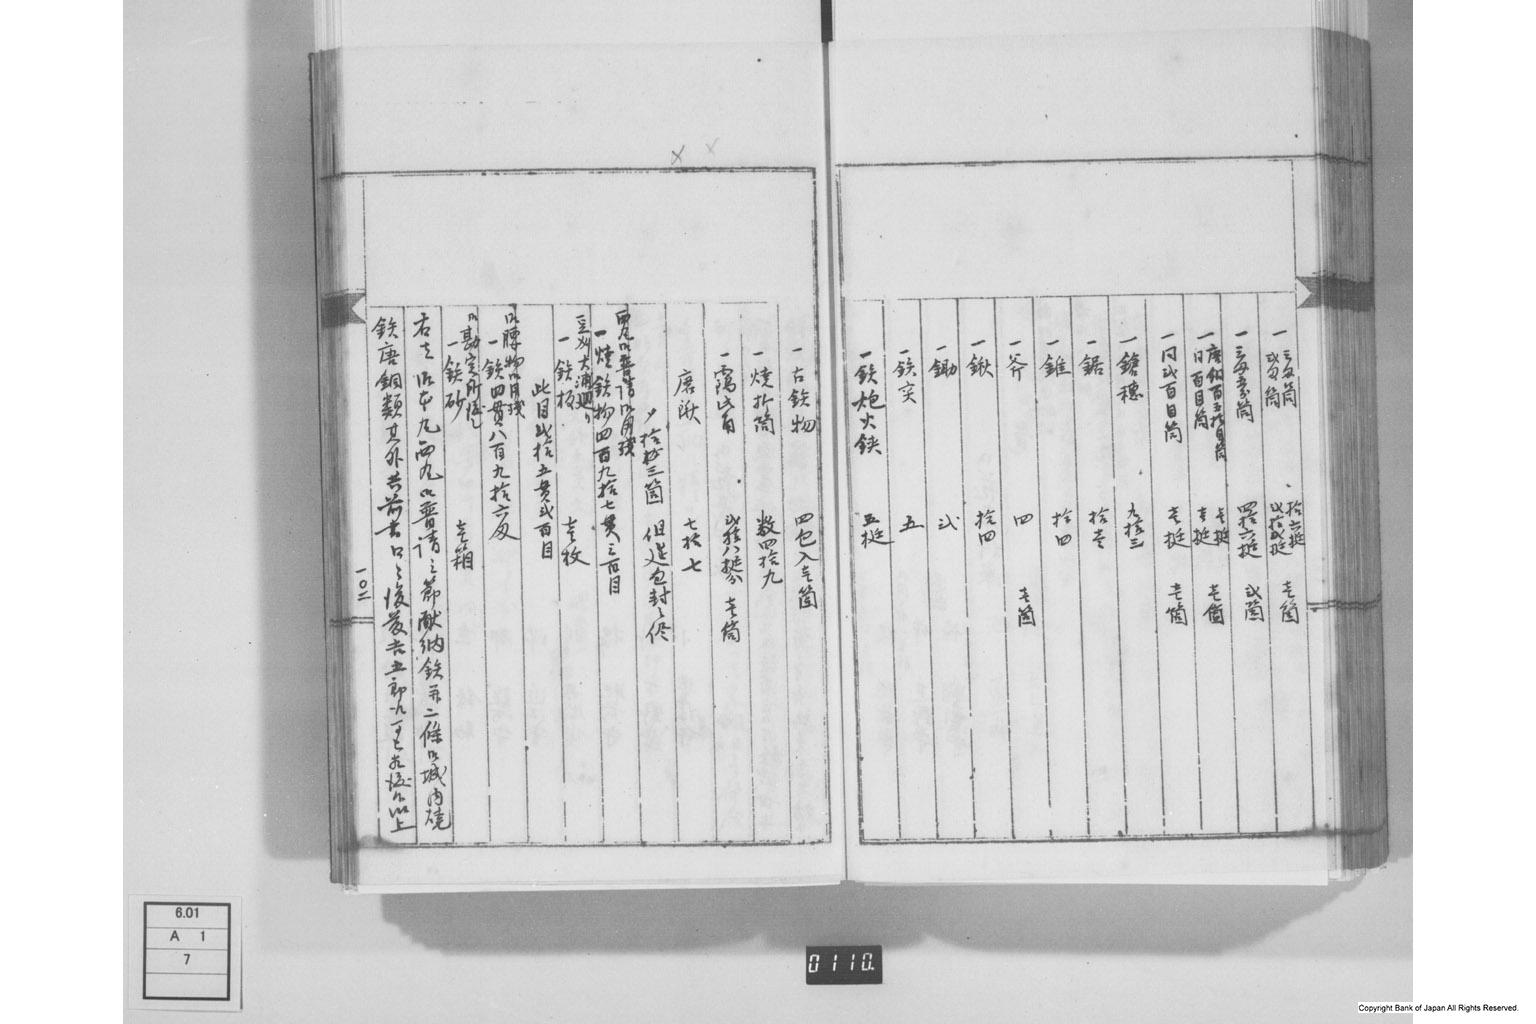 一 三匁筒 拾六挺 壱箇
弐匁筒 弐拾弐挺
一 三匁五分筒 四拾六挺 弐箇
一 唐銅百五拾目筒 壱挺 壱箇
一 同百目筒 壱挺
一 同弐百目筒 壱挺 壱箇
一 鎗穂 九拾三
一 鋸 拾壱
一 錐 拾四
一 斧 四 壱箇
一 鍬 拾四
一 鋤 弐
一 鉄実 五
一 鉄炮火鋏 五挺
一 古鉄物 四包入壱箇
一 焼折筒 数四拾九
一 弐拾八挺 壱筒
唐鍬 七拾七
〆 拾三箇 但 包封之侭
西丸御普請御用残
一 焼鉄物四百九拾七貫三百目
一 鉄板 壱枚
此目弐拾五貫弐百目
御腰物御用残
一 鉄四貫八百九拾六匁
御勘定所渡
一 鉄砂 壱箱
右者御本丸西丸御普請之節献納鉄并二條御城内焼
鉄唐銅類其外共前書口々後藤吉五郎
以上
一〇二
6.01
A 1
7
0110.
Copyright Bank of Japan All Rights Reserved.